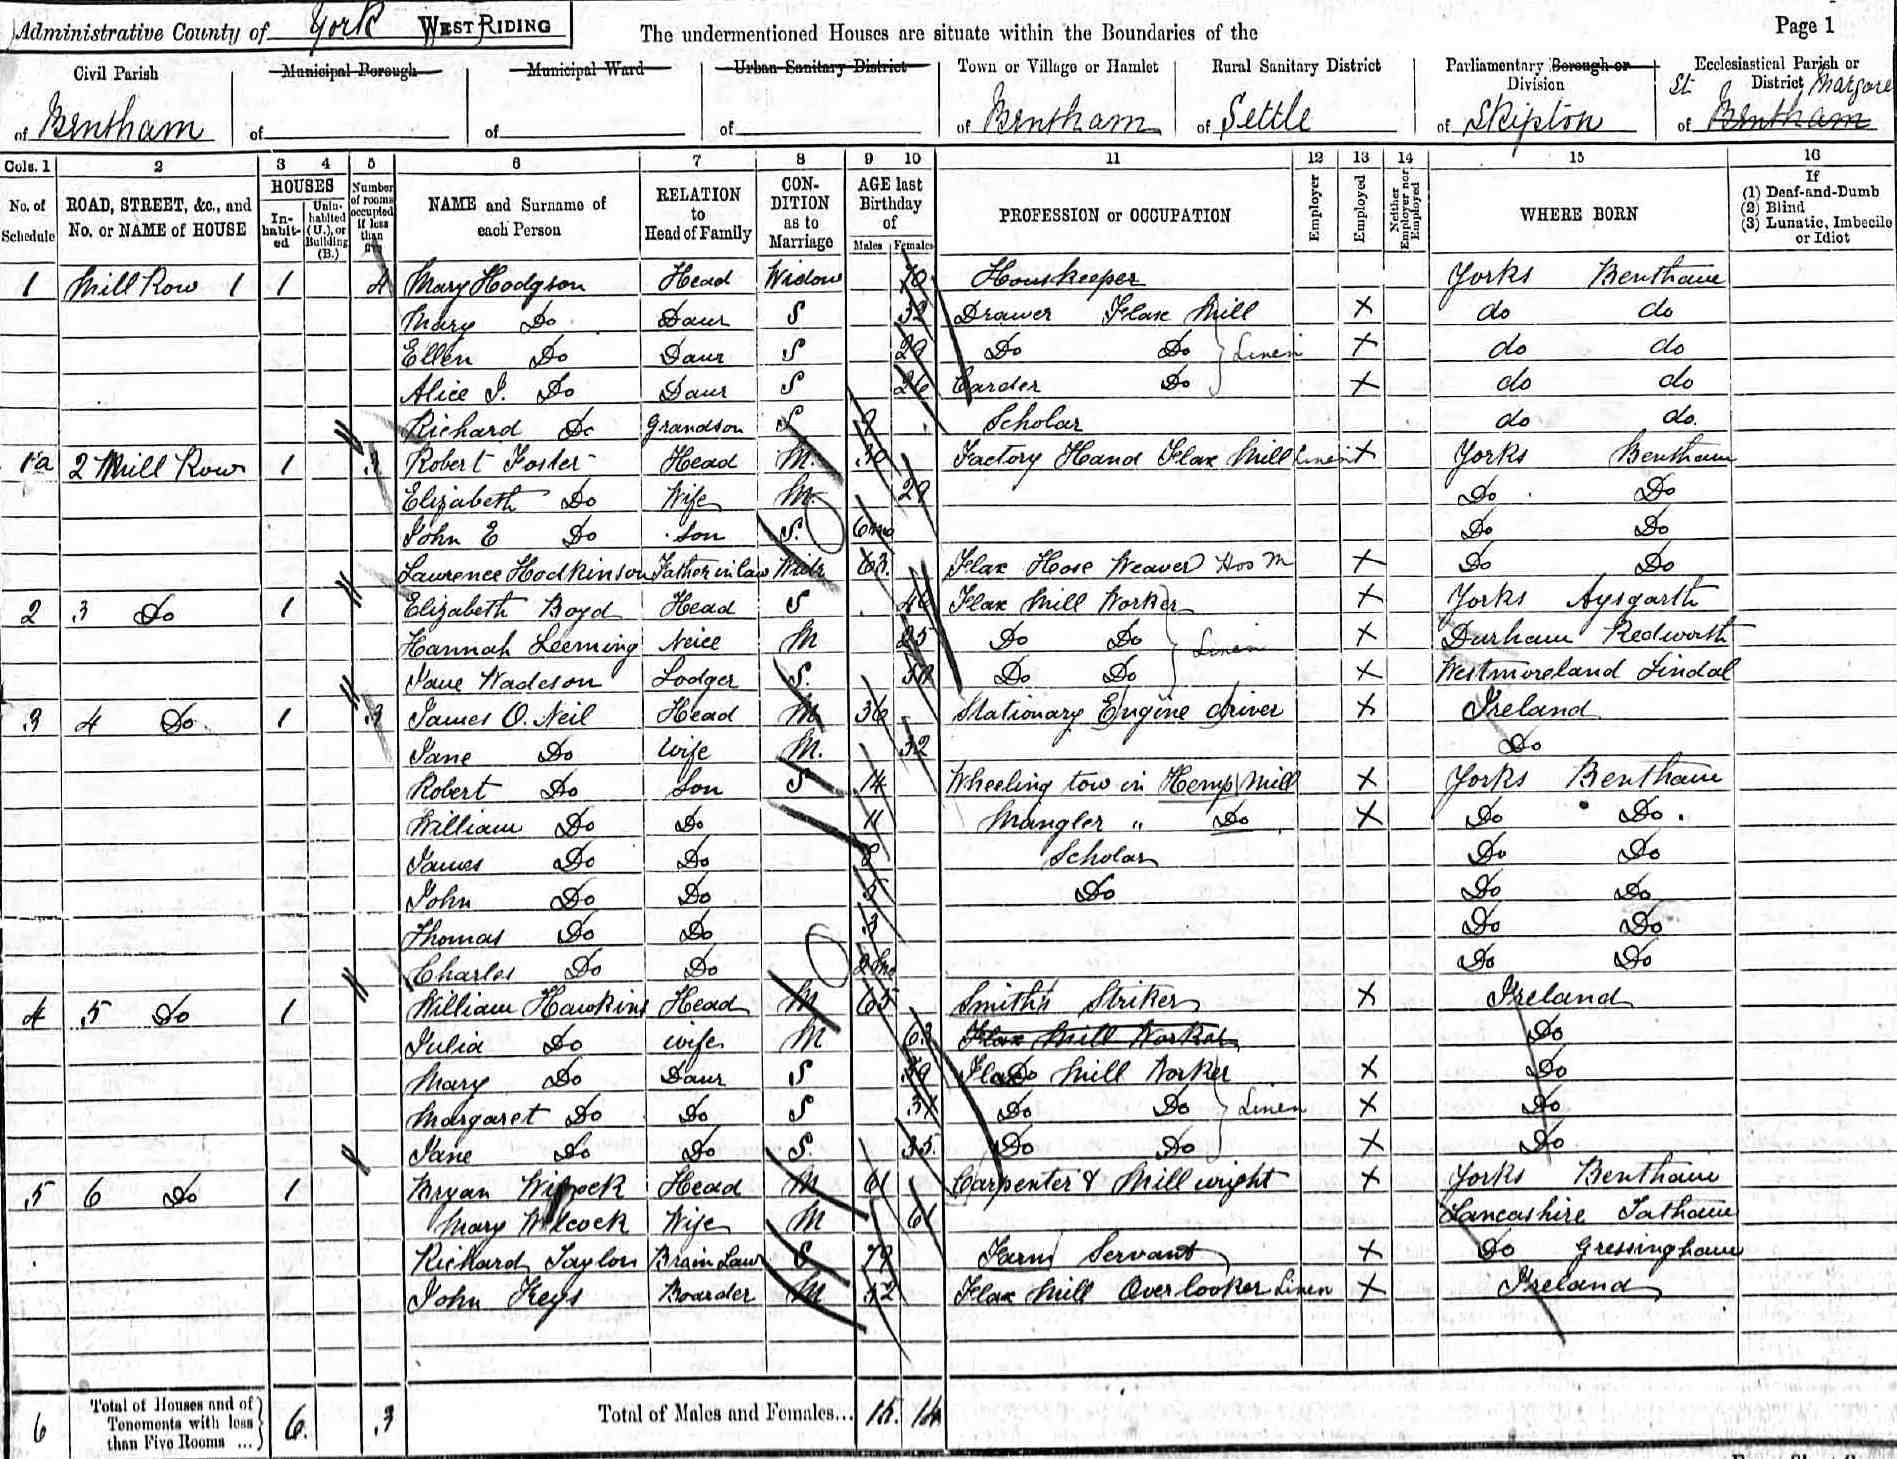 Administrative County of York WEST RIDING
The undermentioned Houses are situate within the Boundaries of the
Page 1
Civil Parish of Bentham
Municipal Borough of
Municipal Ward of
Urban Sanitary District of
Town or Village or Hamlet of Bentham
Rural Sanitary District of Settle
Parliamentary Borough or Division of Skipton
Ecclesiastical Parish or District of St Margare Bentham
Cols. 1 2 3 4 5 6 7 8 9 10 11 12 13 14 15 16
No. of Schedule
ROAD, STREET, &c., and No. or NAME of HOUSE
HOUSES
In-habit-ed
Unin-habited (U.), or Building (B.)
Number of rooms occupied if less than five
NAME and Surname of each Person
RELATION to Head of Family
CON-DITION as to Marriage
AGE last Birthday of
Males Females
PROFESSION or OCCUPATION
Employer
Employed
Neither Employer nor Employed
WHERE BORN
If
(1) Deaf-and-Dumb
(2) Blind
(3) Lunatic, Imbecile or Idiot
1 Mill Row 1 1 4 Mary Hodgson Head Widow 70 Houskeeper Yorks Bentham
Mary Do Daur S 32 Drawer Flax Mill X do do
Ellen Do Daur S 29 Do Do Linen X do do
Alice J. Do Daur S 26 Carder Do X do do
Richard Do Grandson S 9 Scholar do do.
1a 2 Mill Row 1 3 Robert Foster Head M. 30 Factory Hand Flax Mill Linen X Yorks Bentham
Elizabeth Do Wife M. 29 Do Do
John E Do Son S. 6mo Do Do
Lawrence Hodkinson Father in law Widr 63. Flax Hose Weaver Hos M X Do Do
2 3 Do 1 Elizabeth Boyd Head S Flax Mill Worker X Yorks Aysgarth
Hannah Leeming Neice M 25 Do Do Linen X Durham Redworth
Jane Wadeson Lodger S. Do Do X Westmoreland Lindal
3 4 Do 1 3 James O. Neil Head M 36 Stationary Engine driver X Ireland
Jane Do wife M. 32 Do
Robert Do Son S 14 Wheeling tow in Hemp Mill X Yorks Bentham
William Do Do 11 Mangler " Do X Do Do.
James Do Do 8 Scholar Do Do
John Do Do 5 Do Do Do
Thomas Do Do 3 Do Do
Charles Do Do 2mo Do Do
4 5 Do 1 William Hawkins Head M 65 Smith's Striker X Ireland
Julia Do wife M 63 Flax Mill Worker Do
Mary Do Daur S 39 Flax Do Mill Worker X Do
Margaret Do Do S 37 Do Do Linen X Do
Jane Do Do S. 35. Do Do X Do
5 6 Do 1 Bryan Wilcock Head M 61 Carpenter & Millwright X Yorks Bentham
Mary Wilcock Wife M 61 Lancashire Tatham
Richard Taylor Bro in Law S 79 Farm Servant X Do Gressingham
John Keys Boarder M 52 Flax Mill Overlooker Linen X Ireland
6 Total of Houses and of Tenements with less than Five Rooms ... 6. 3 Total of Males and Females... 15. 14